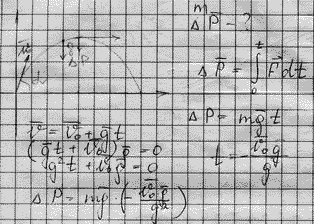 m
Δ P̅ - ?
Δ P̅ = ∫₀ᵗ F⃗ dt
Δ P = m g̅ t
t = - v̅₀ g̅ / g
v̅
α
g̅
Δ P̅
v̅ = v̅₀ + g̅ t
(g̅ t + v̅₀) g̅ = 0
g² t + v̅₀ g̅ = 0
Δ P = m g̅ · (- v̅₀ g̅ / g²)